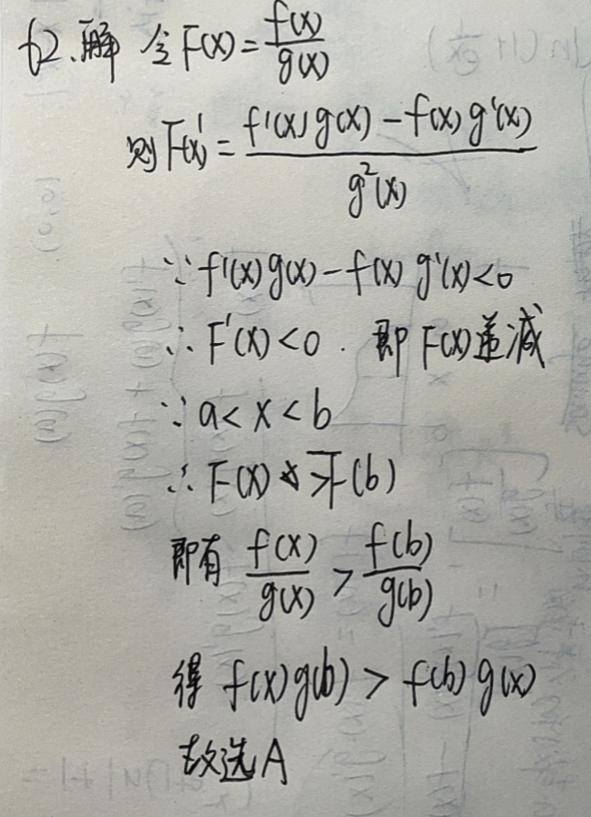 62.解 令F(x)=f(x)/g(x)
则F(x)'=f'(x)g(x)-f(x)g'(x)/g²(x)
∵f'(x)g(x)-f(x)g'(x)<0
∴F'(x)<0.即F(x)递减
∵a<x<b
∴F(x)>F(b)
即有 f(x)/g(x)>f(b)/g(b)
得 f(x)g(b)>f(b)g(x)
故选A